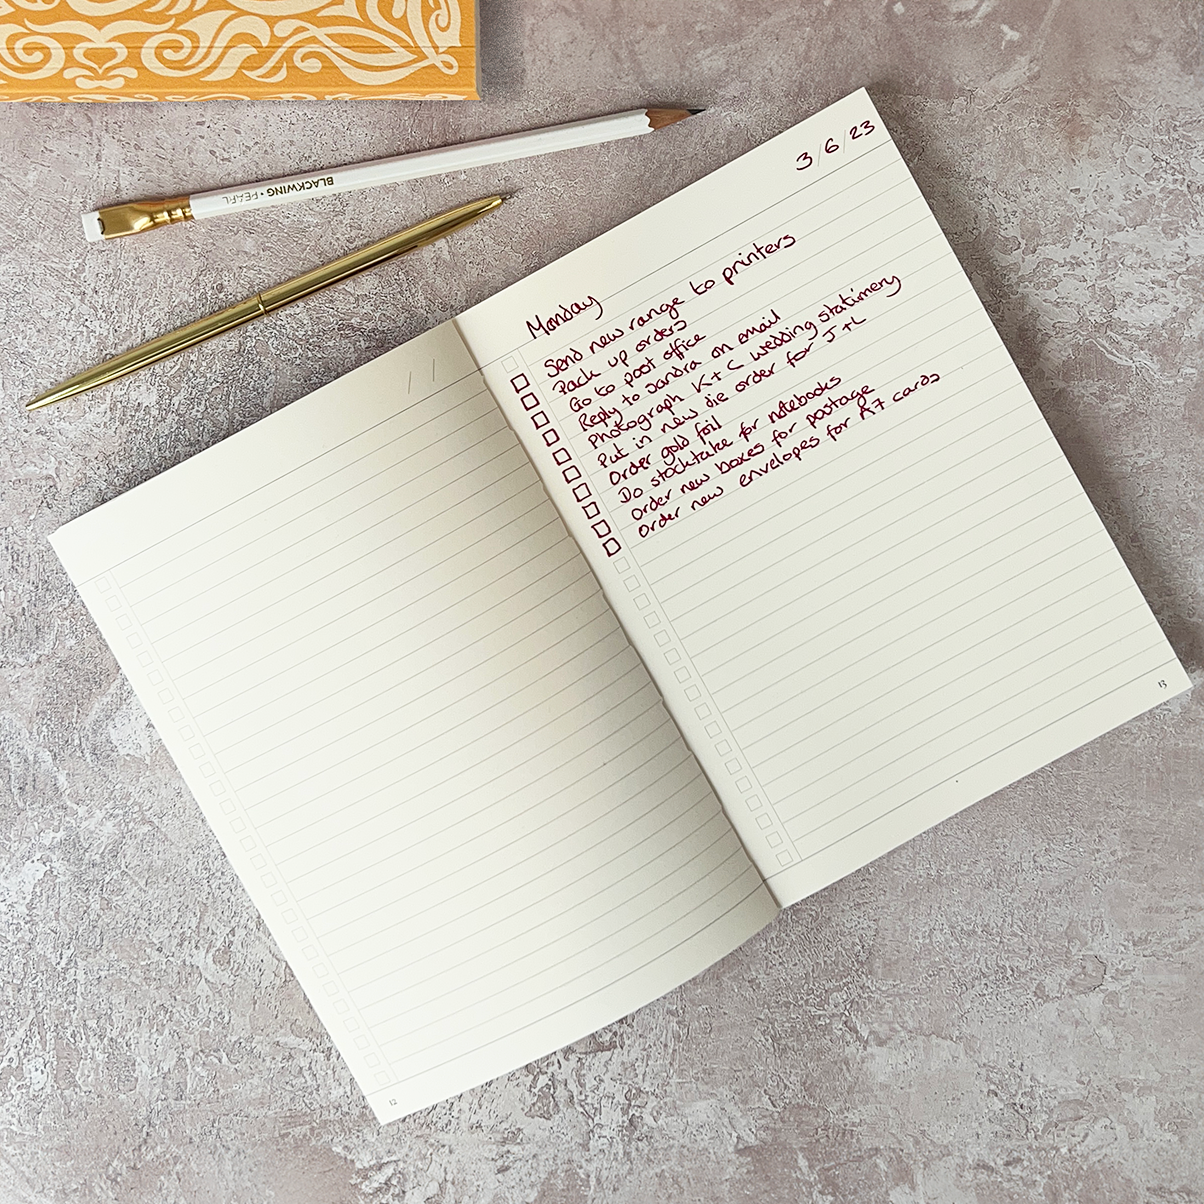 BLACKWING • PEARL
3/6/23
Monday
Send new range to printers
Pack up orders
Go to post office
Reply to Sandra on email
Photograph K+C wedding stationery
Put in new die order for J+L
Order gold foil
Do stocktake for notebooks
Order new boxes for postage
Order new envelopes for A7 cards
/ /
12
13